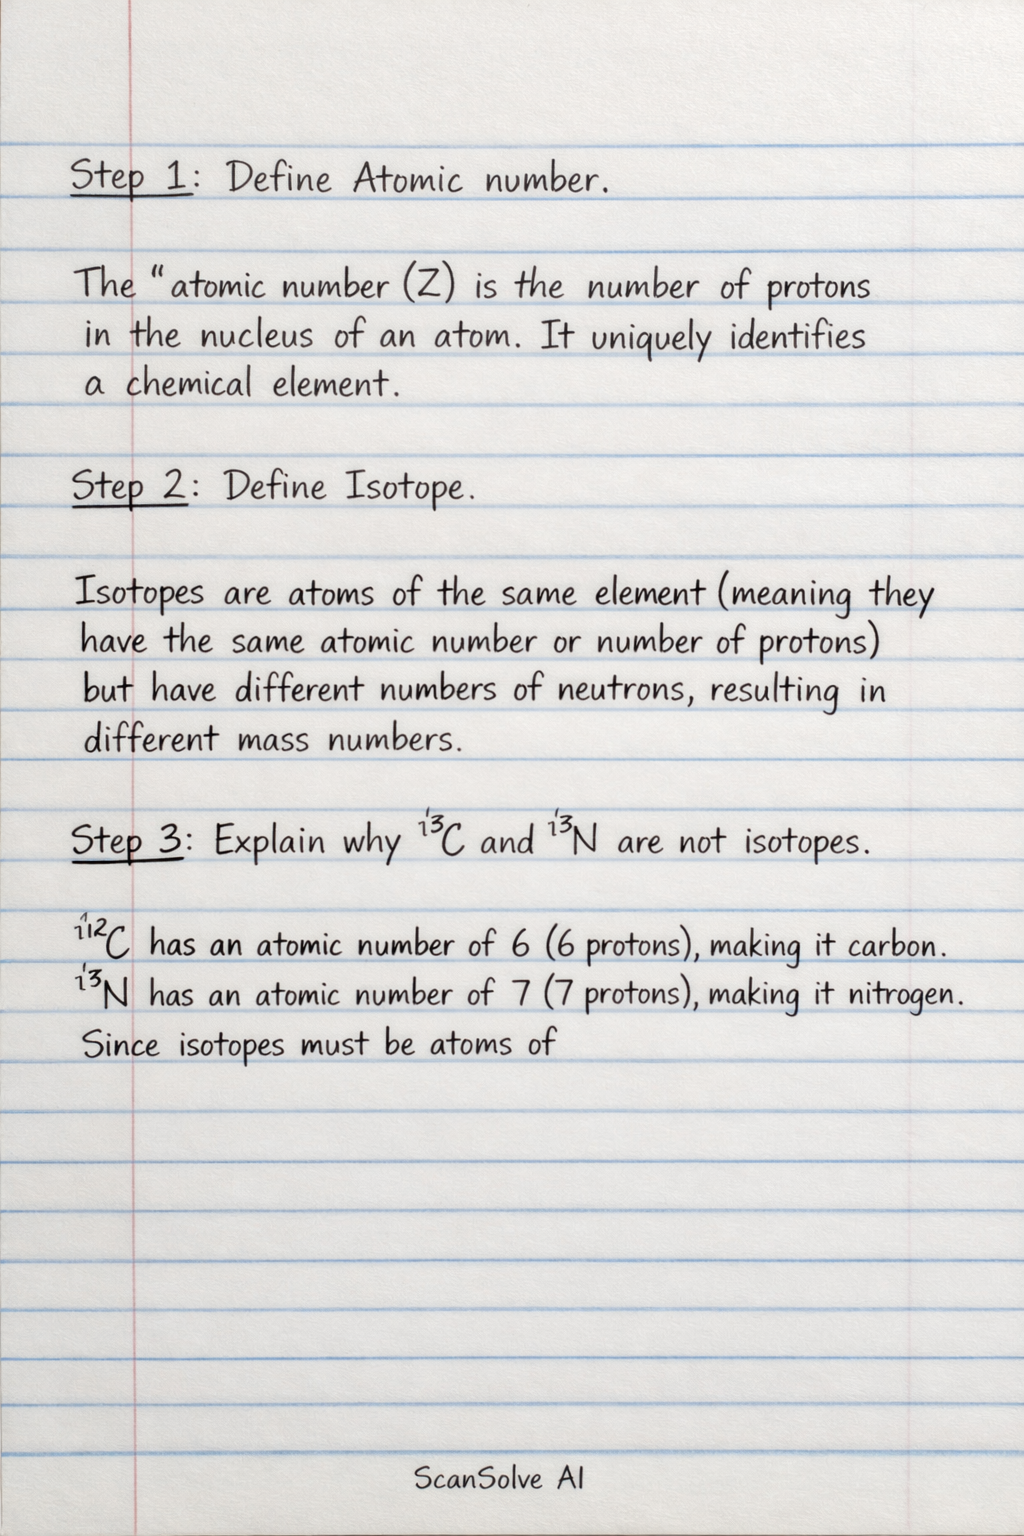 Step 1: Define Atomic number.
The “atomic number (Z) is the number of protons
in the nucleus of an atom. It uniquely identifies
a chemical element.
Step 2: Define Isotope.
Isotopes are atoms of the same element (meaning they
have the same atomic number or number of protons)
but have different numbers of neutrons, resulting in
different mass numbers.
Step 3: Explain why ¹³C and ¹³N are not isotopes.
ⁱ¹²C has an atomic number of 6 (6 protons), making it carbon.
¹³N has an atomic number of 7 (7 protons), making it nitrogen.
Since isotopes must be atoms of
ScanSolve AI